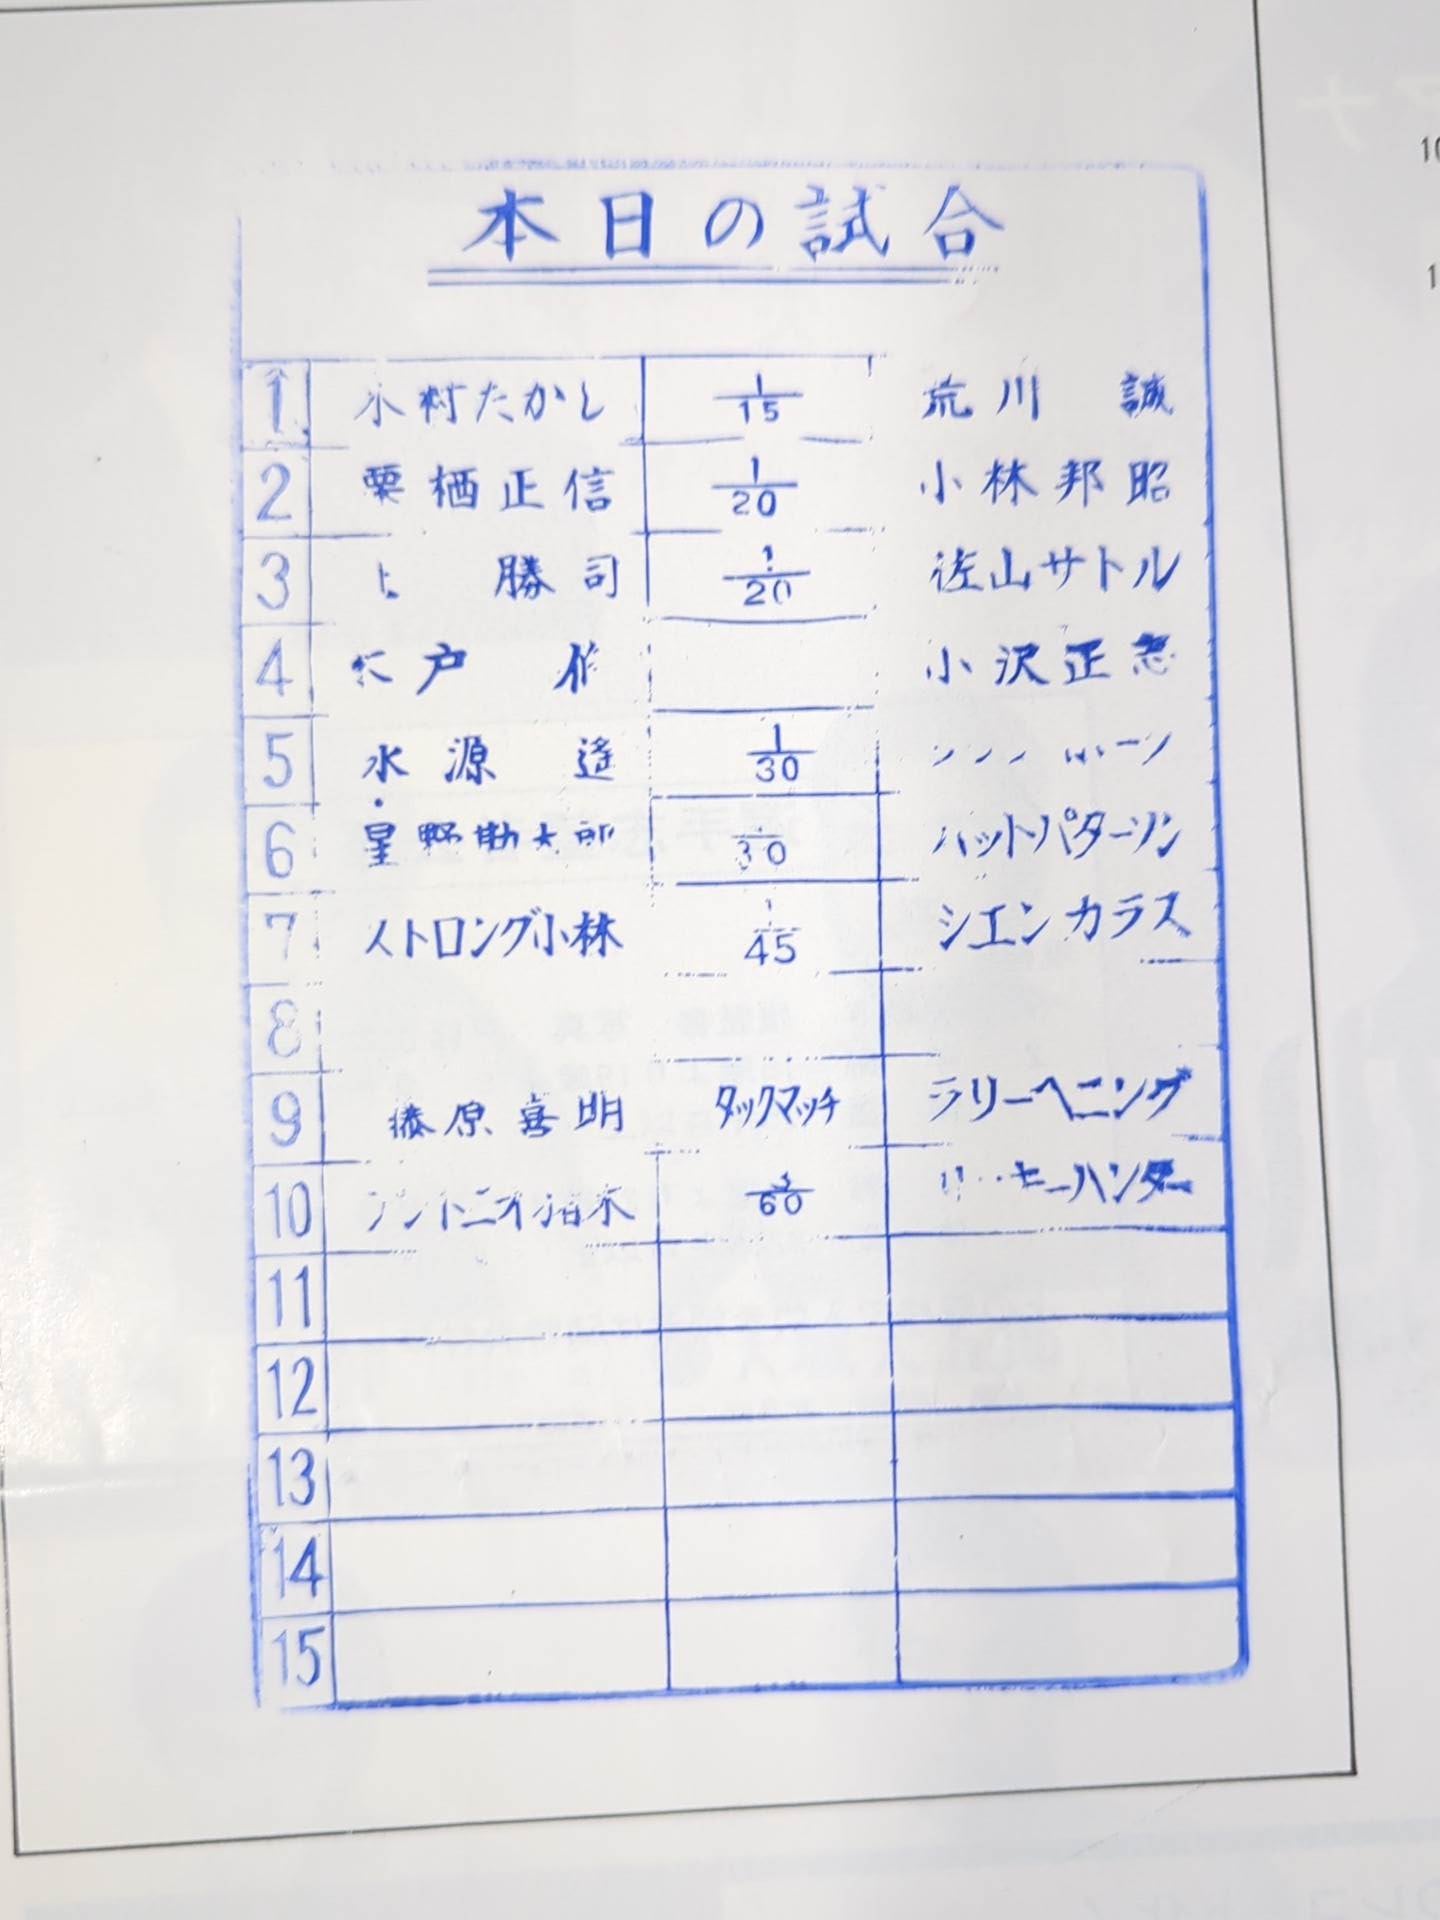 本日の試合
1 木村たかし 1/15 荒川 誠
2 栗栖正信 1/20 小林邦昭
3 勝司 1/20 佐山サトル
4 戸 小沢正志
5 水源 遥 1/30
6 星野勘太郎 30 ハットパターソン
7 ストロング小林 1/45 シエンカラス
8
9 藤原喜明 タックマッチ ラリーヘニング
10 アントニオ猪木 3/60 ハンター
11
12
13
14
15